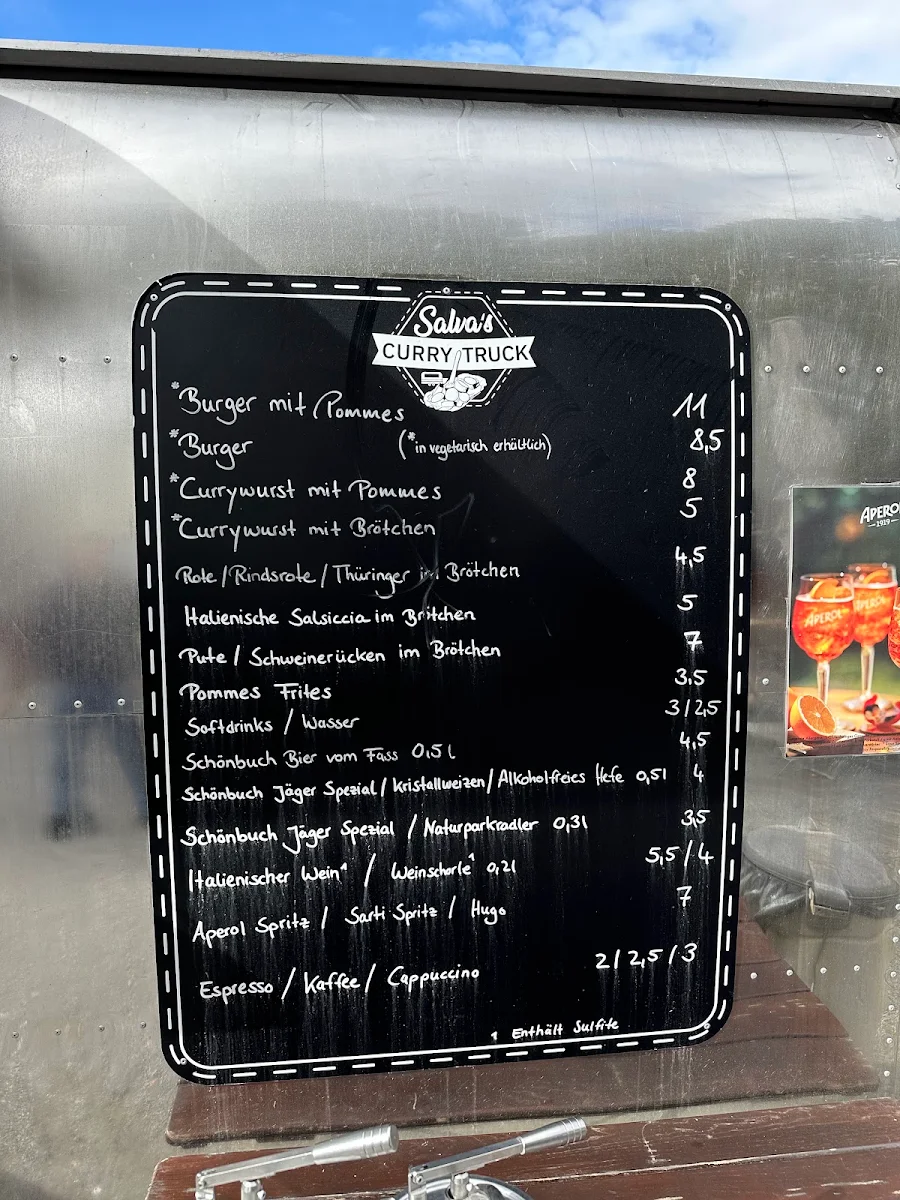 Salva's
CURRY TRUCK
*Burger mit Pommes 11
*Burger (*in vegetarisch erhältlich) 8,5
*Currywurst mit Pommes 8
*Currywurst mit Brötchen 5
Rote / Rindsrote / Thüringer im Brötchen 4,5
Italienische Salsiccia im Brötchen 5
Pute / Schweinerücken im Brötchen 7
Pommes Frites 3,5
Softdrinks / Wasser 3 / 2,5
Schönbuch Bier vom Fass 0,5 l 4,5
Schönbuch Jäger Spezial / Kristallweizen / Alkoholfreies Hefe 0,5l 4
Schönbuch Jäger Spezial / Naturparkradler 0,3l 3,5
Italienischer Wein¹ / Weinschorle¹ 0,2l 5,5 / 4
Aperol Spritz / Sarti Spritz / Hugo 7
Espresso / Kaffee / Cappuccino 2 / 2,5 / 3
1 Enthält Sulfite
APEROL
1919
APEROL
APEROL